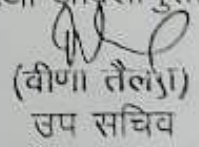 (वीणा तैलंग)
उप सचिव